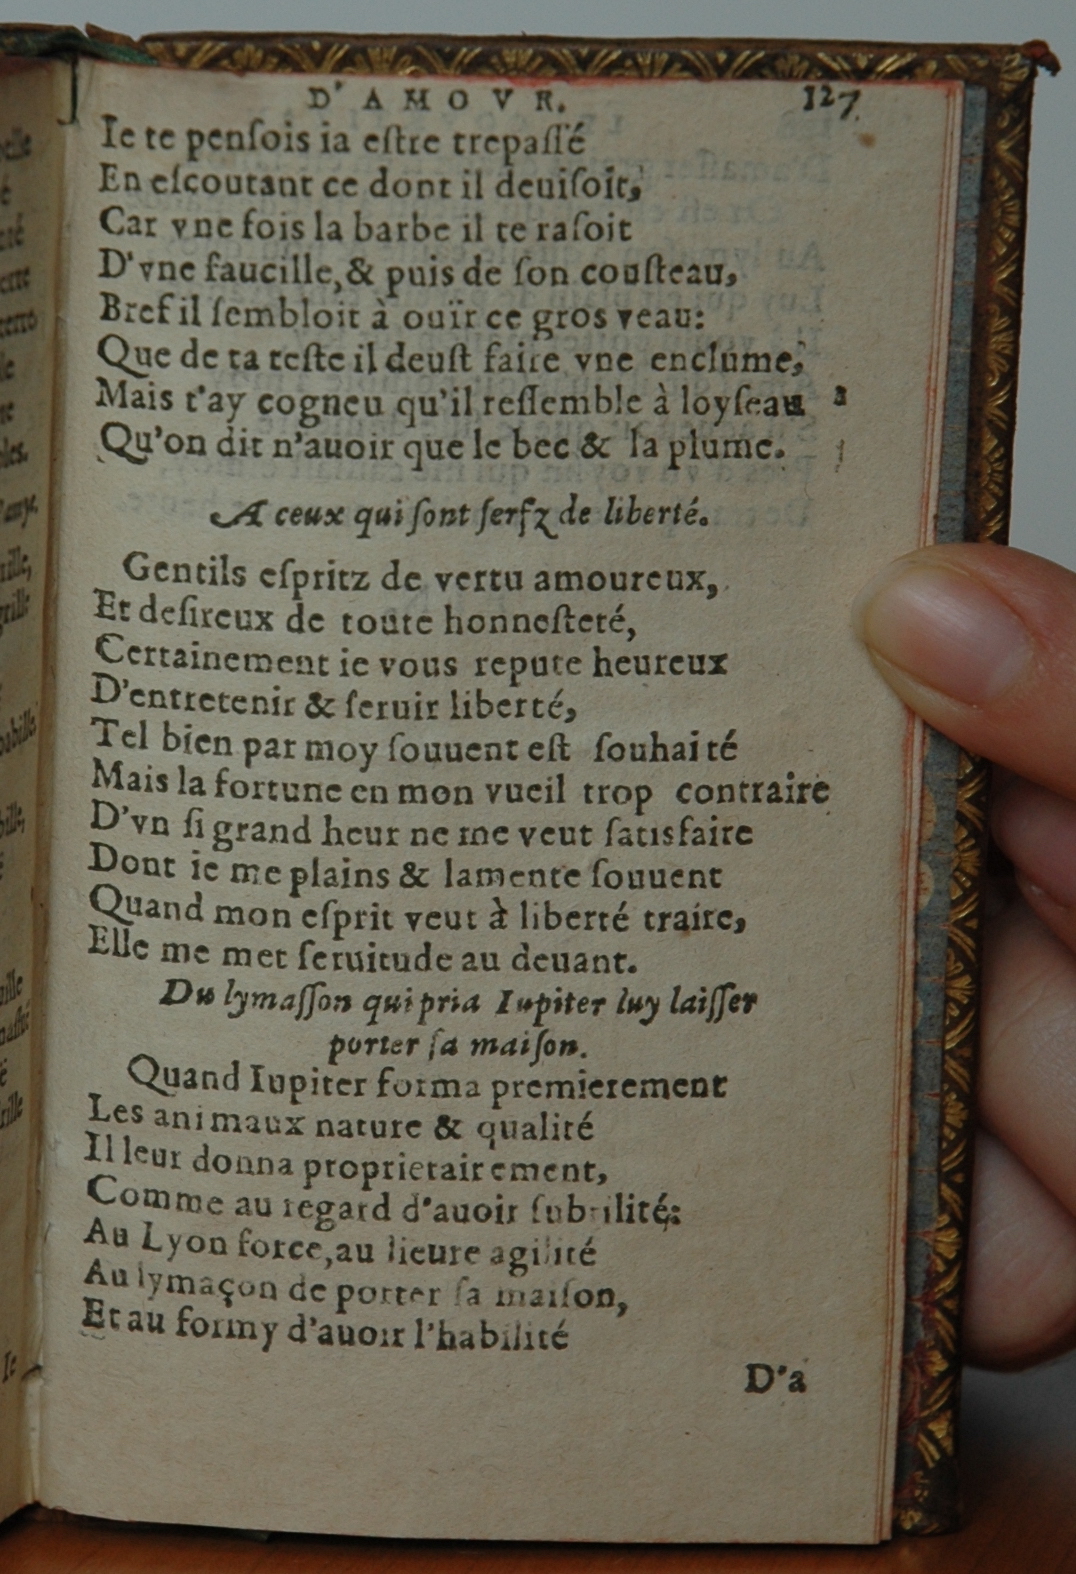 D' A M O V R.
127
Ie te penſois ia eſtre trepaſſé
En eſcoutant ce dont il deuiſoit,
Car vne fois la barbe il te raſoit
D'vne faucille, & puis de ſon couſteau,
Bref il ſembloit à ouïr ce gros veau:
Que de ta teſte il deuſt faire vne enclume,
Mais t'ay cogneu qu'il reſſemble à loyſeau
Qu'on dit n'auoir que le bec & la plume.
A ceux qui ſont ſerfz de liberté.
Gentils eſpritz de vertu amoureux,
Et deſireux de toute honneſteté,
Certainement ie vous repute heureux
D'entretenir & ſeruir liberté,
Tel bien par moy ſouuent eſt ſouhaité
Mais la fortune en mon vueil trop contraire
D'vn ſi grand heur ne me veut ſatisfaire
Dont ie me plains & lamente ſouuent
Quand mon eſprit veut à liberté traire,
Elle me met ſeruitude au deuant.
Du lymaſſon qui pria Iupiter luy laiſſer
porter ſa maiſon.
Quand Iupiter forma premierement
Les animaux nature & qualité
Il leur donna proprietairement,
Comme au regard d'auoir ſubtilité:
Au Lyon force, au lieure agilité
Au lymaçon de porter ſa maiſon,
Et au formy d'auoir l'habilité
D'a